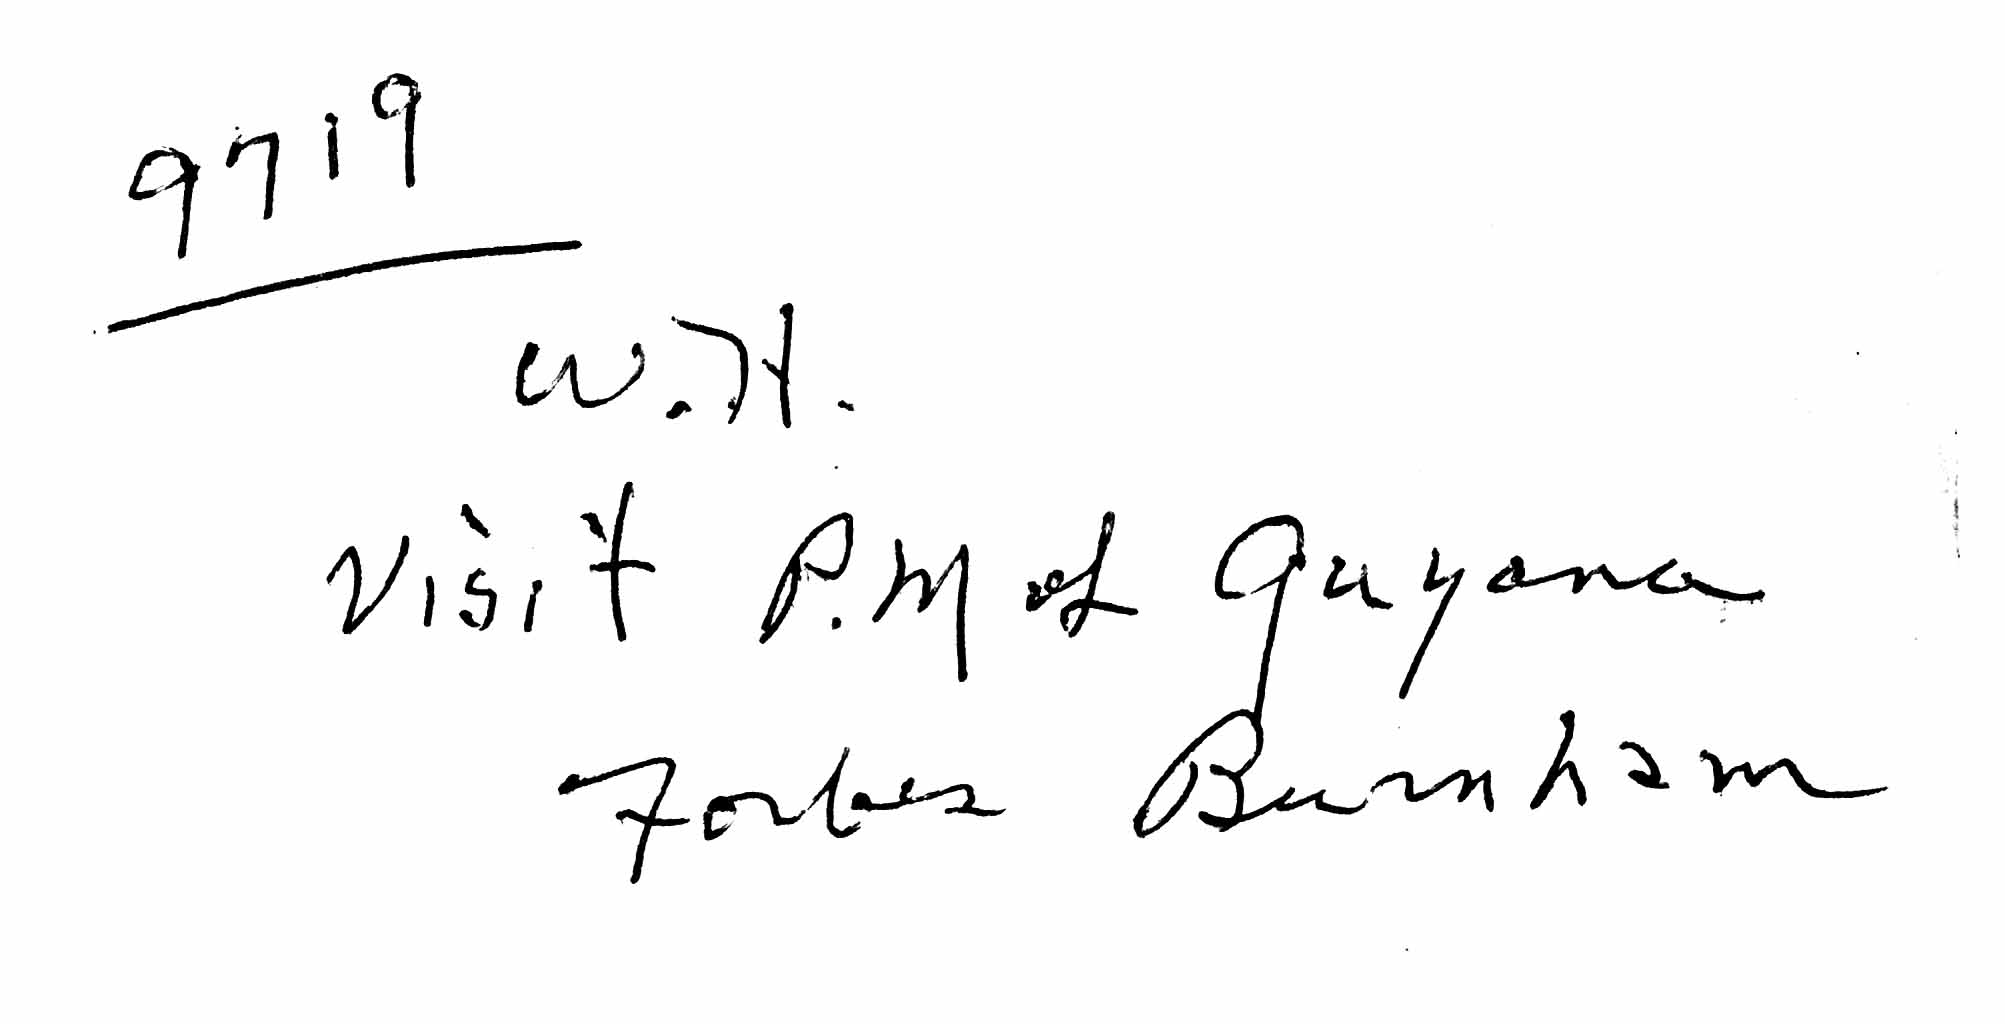 9719
W.H.
Visit P.M of Guyana
Forbes Burnham